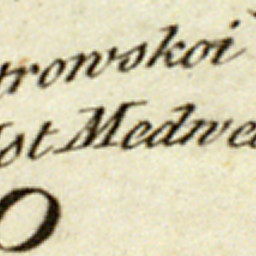 trowskoi
st Medwe
O